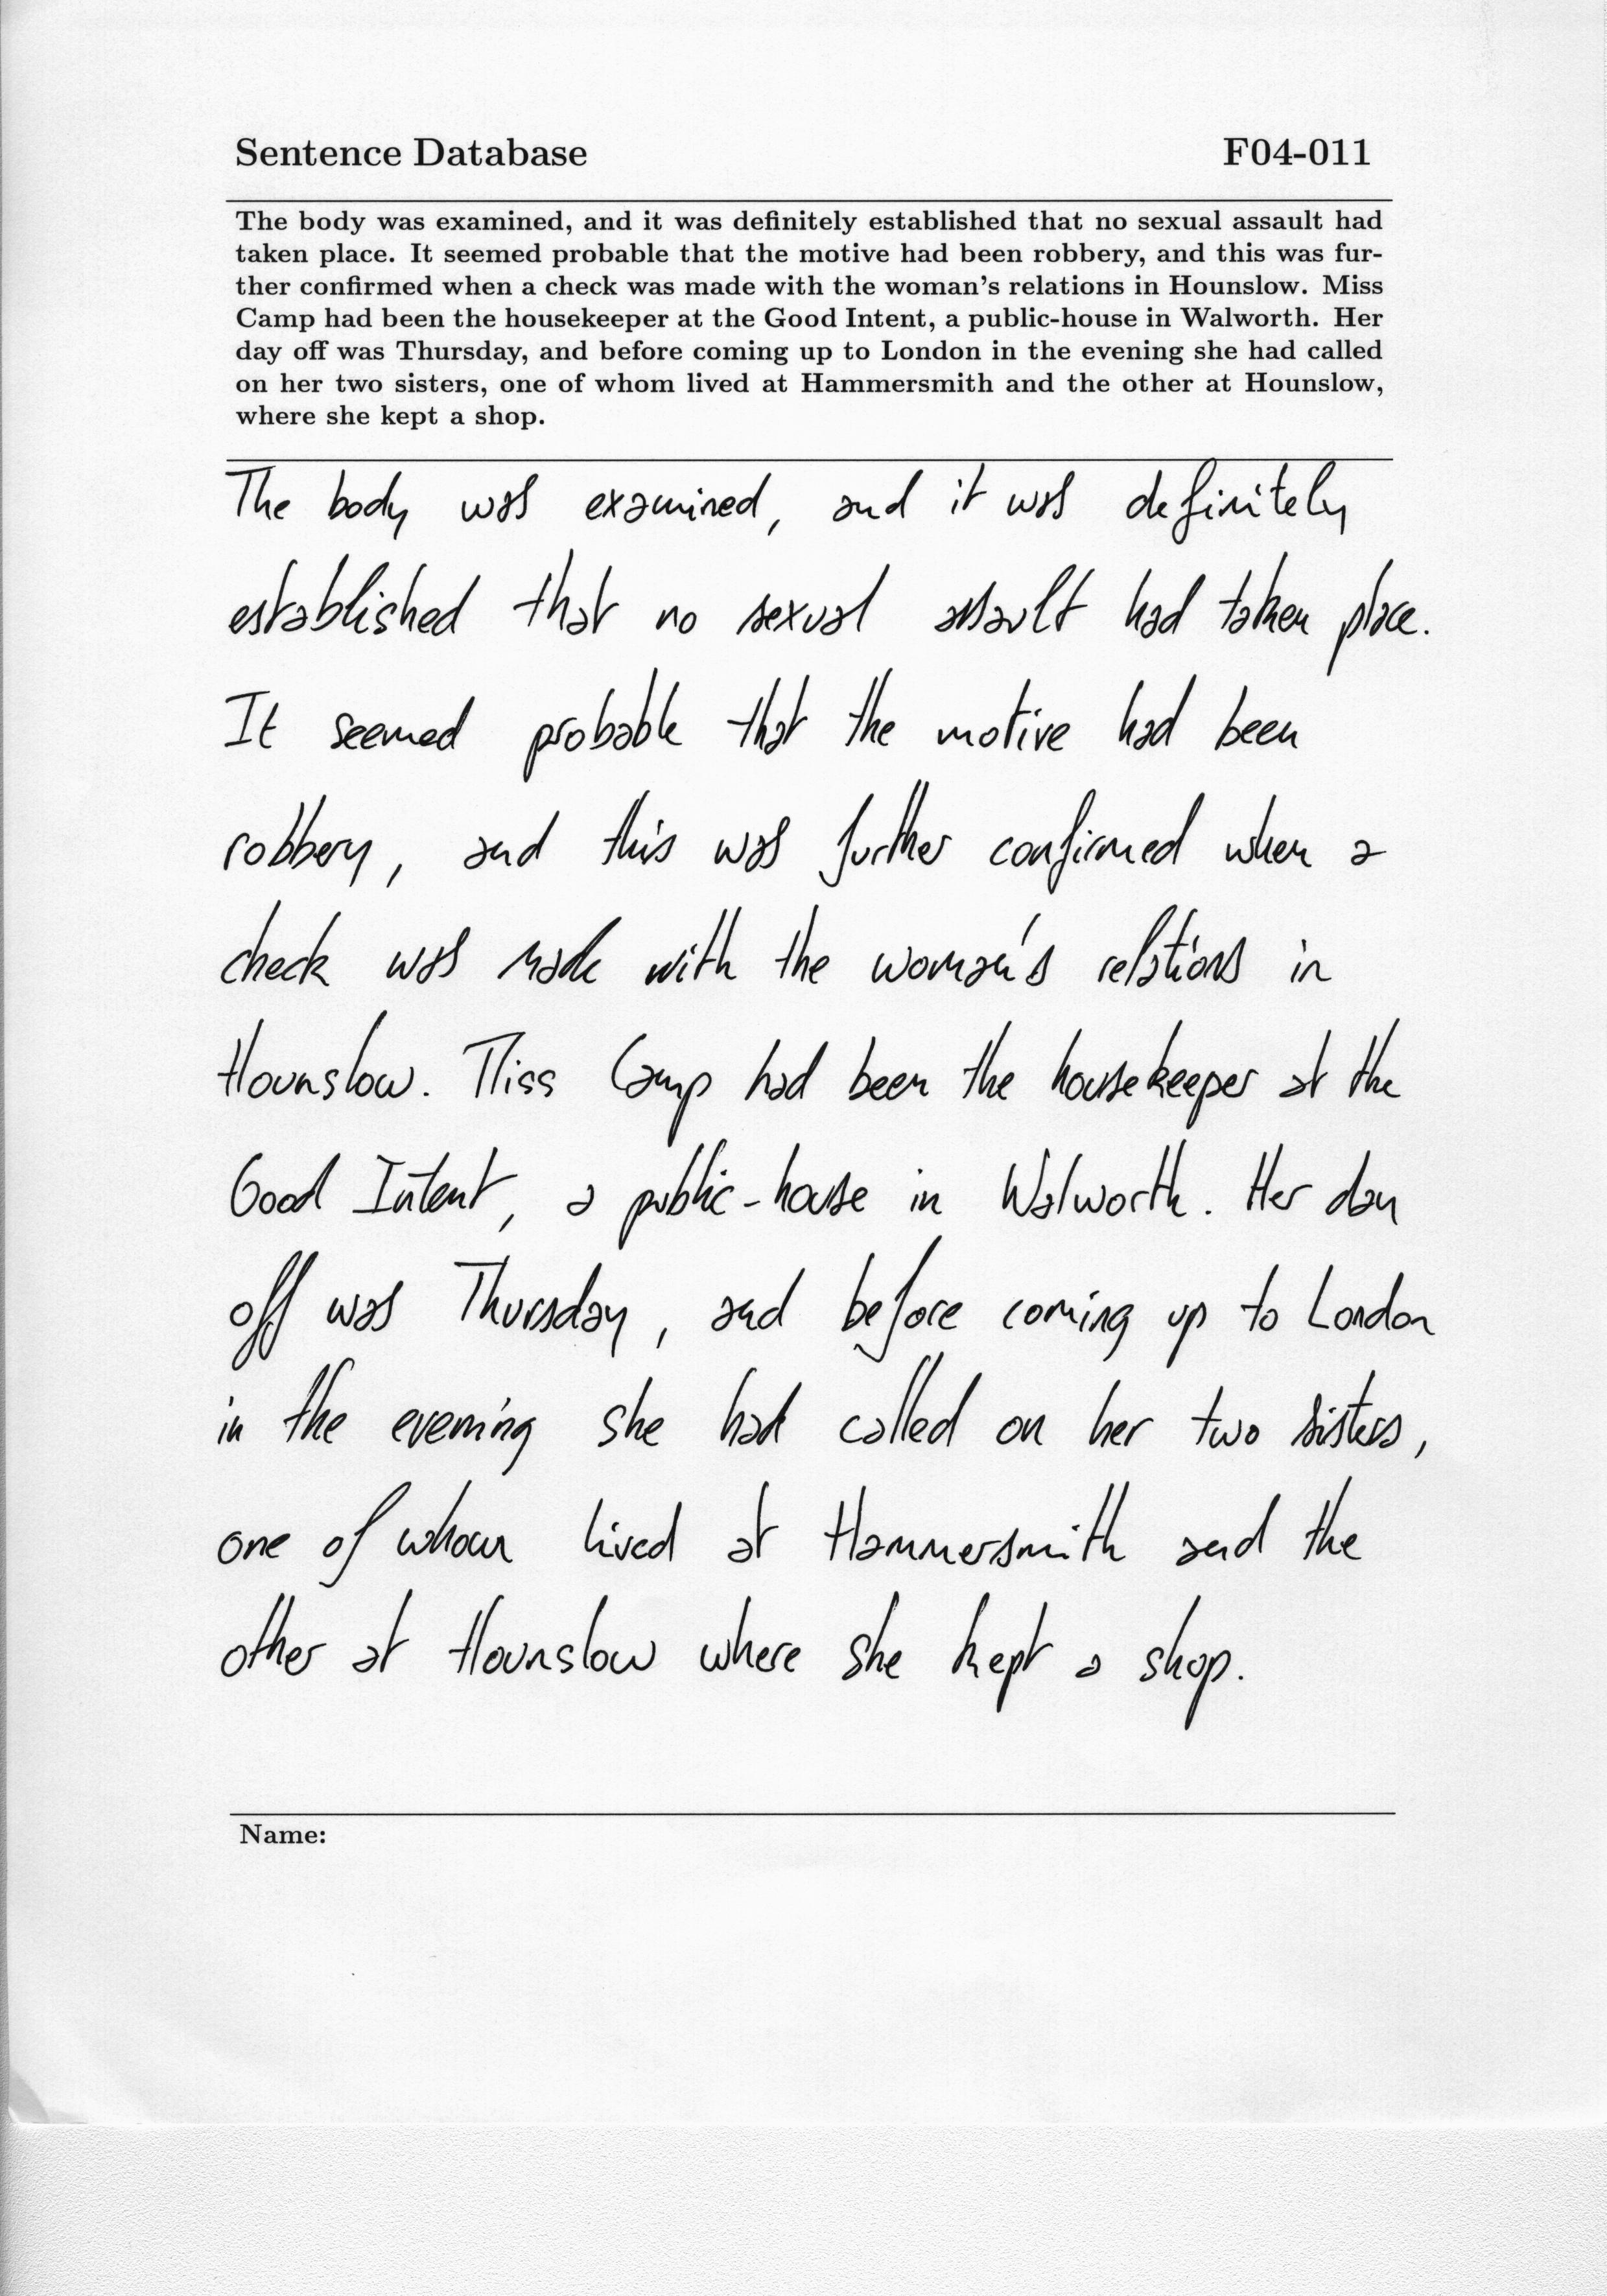 Sentence Database F04-011
The body was examined, and it was definitely established that no sexual assault had
taken place. It seemed probable that the motive had been robbery, and this was fur-
ther confirmed when a check was made with the woman's relations in Hounslow. Miss
Camp had been the housekeeper at the Good Intent, a public-house in Walworth. Her
day off was Thursday, and before coming up to London in the evening she had called
on her two sisters, one of whom lived at Hammersmith and the other at Hounslow,
where she kept a shop.
The body was examined, and it was definitely
established that no sexual assault had taken place.
It seemed probable that the motive had been
robbery, and this was further confirmed when a
check was made with the woman's relations in
Hounslow. Miss Camp had been the housekeeper at the
Good Intent, a public-house in Walworth. Her day
off was Thursday, and before coming up to London
in the evening she had called on her two sisters,
one of whom lived at Hammersmith and the
other at Hounslow where she kept a shop.
Name: